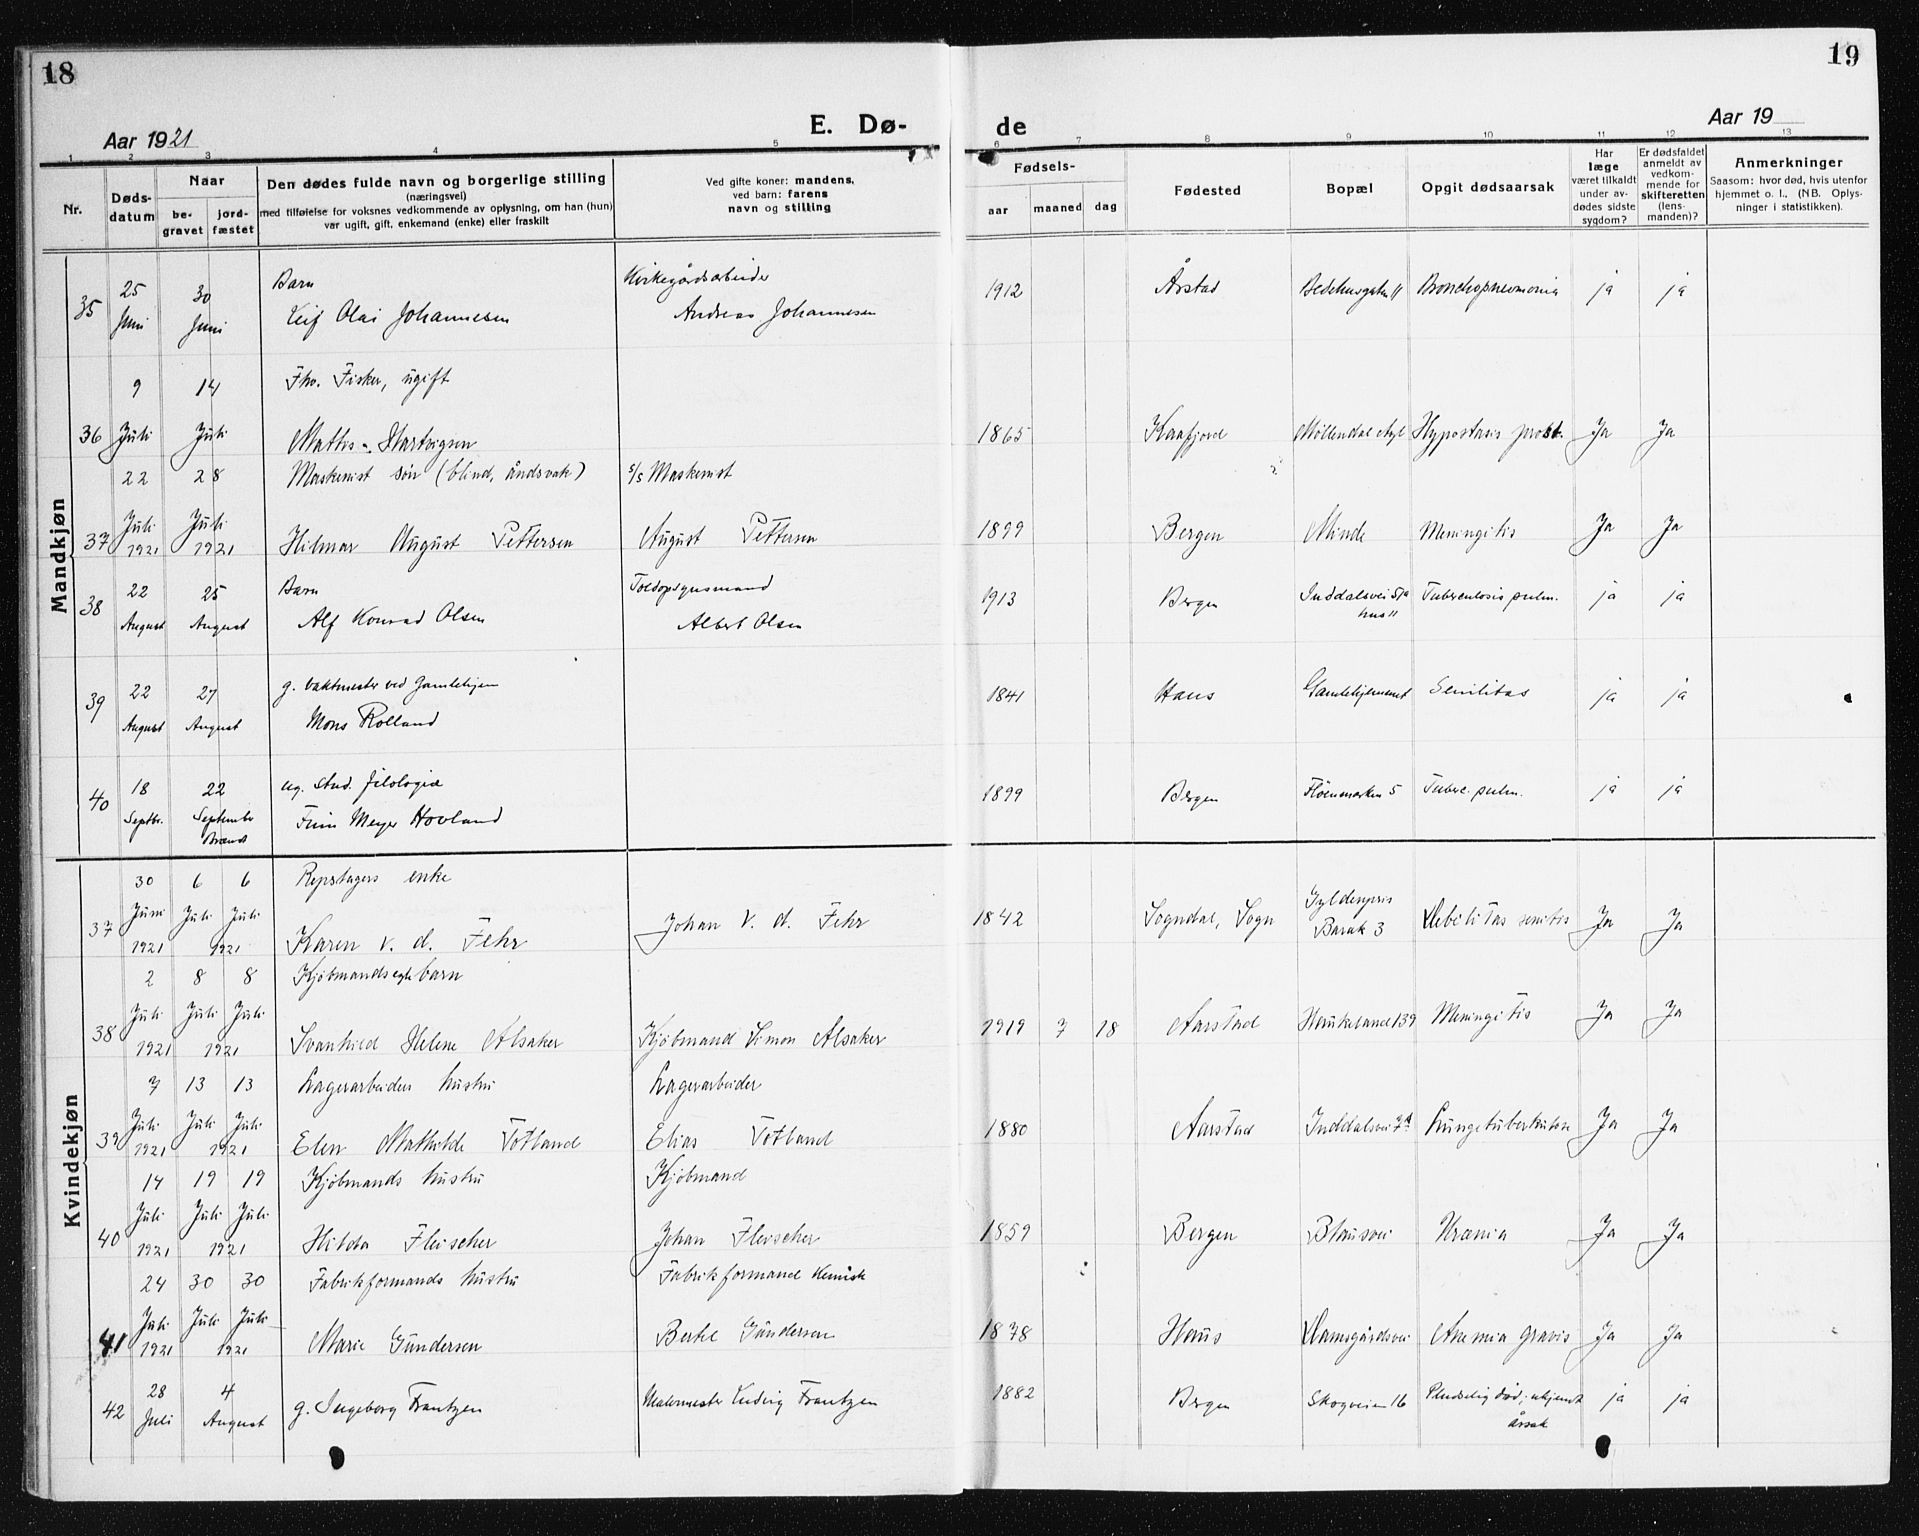 18
19
Aar 1921
E. Dø-
de
Aar 19
1 2 3 4 5 6 7 8 9 10 11 12 13
Nr.
Døds-
datum
Naar
be-
gravet
jord-
fæstet
Den dødes fulde navn og borgerlige stilling
(næringsvei)
med tilføielse for voksnes vedkommende av oplysning, om han (hun)
var ugift, gift, enkemand (enke) eller fraskilt
Ved gifte koner: mandens,
ved barn: farens
navn og stilling
Fødsels-
aar
maaned
dag
Fødested
Bopæl
Opgit dødsaarsak
Har
læge
været tilkaldt
under av-
dødes sidste
sygdom?
Er dødsfaldet
anmeldt av
vedkom-
mende for
skifteretten
(lens-
manden)?
Anmerkninger
Saasom: hvor død, hvis utenfor
hjemmet o. l., (NB. Oplys-
ninger i statistikken).
Mandkjøn
25 30 Barn Kirkegårdsarbeider
35 Juni Juni Leif Olai Johannesen Andreas Johannesen 1912 Årstad Bedehusgaten 11 Bronchopneumonia ja ja
9 14 Fhv. Fisker, ugift
36 Juli Juli Mattis Hartvigsen 1865 Kaafjord Møllendal Hypostasis Ja Ja
22 28 Maskinist søn (blind, åndsvak) s/s Maskinist
37 Juli 1921 Juli 1921 Hilmar August Pettersen August Pettersen 1899 Bergen Minde Meningitis Ja Ja
22 25 Barn Toldopsynsmand
38 August August Alf Konrad Olsen Albert Olsen 1913 Bergen Inddalsvei 57a
hus 11 Tuberculosis pulm. ja ja
22 27 g. vaktmester ved Gamlehjem
39 August August Mons Rolland 1841 Haus Gamlehjemmet Senilitas ja ja
18 22 ug. stud. filologiæ
40 Septbr. September
Brændt Finn Meyer Hovland 1899 Bergen Fløenmarken 5 Tuberc. pulm. ja ja
Kvindekjøn
30 6 6 Repslagers enke
37 Juni 1921 Juli Juli 1921 Karen v. d. Fehr Johan v. d. Fehr 1842 Sogndal, Sogn Gyldenpris
Barak 3 Debilitas senilis Ja Ja
2 8 8 Kjøbmands egte barn
38 Juli 1921 Juli Juli 1921 Svanhild Helene Alsaker Kjøbmand Simon Alsaker 1919 7 18 Aarstad Haukeland 139 Meningitis Ja Ja
7 13 13 Lagerarbeiders hustru Lagerarbeider
39 Juli 1921 Juli Juli 1921 Elen Mathilde Totland Elias Totland 1880 Aarstad Inddalsvei 7A Lungetuberkulose Ja Ja
14 19 19 Kjøbmands hustru Kjøbmand
40 Juli 1921 Juli Juli 1921 Hilda Fleischer Johan Fleischer 1859 Bergen Blausvei Uræmia Ja Ja
24 30 30 Fabrikformands hustru Fabrikformand
41 Juli 1921 Juli Juli 1921 Marie Gundersen Bertel Gundersen 1878 Haus Damsgårdsvei Anemia gravis Ja Ja
28 4
42 Juli August g. Ingeborg Frantzen Malermester Ludvig Frantzen 1882 Bergen Skogveien 16 Pludselig død; ukjendt
årsak ja ja